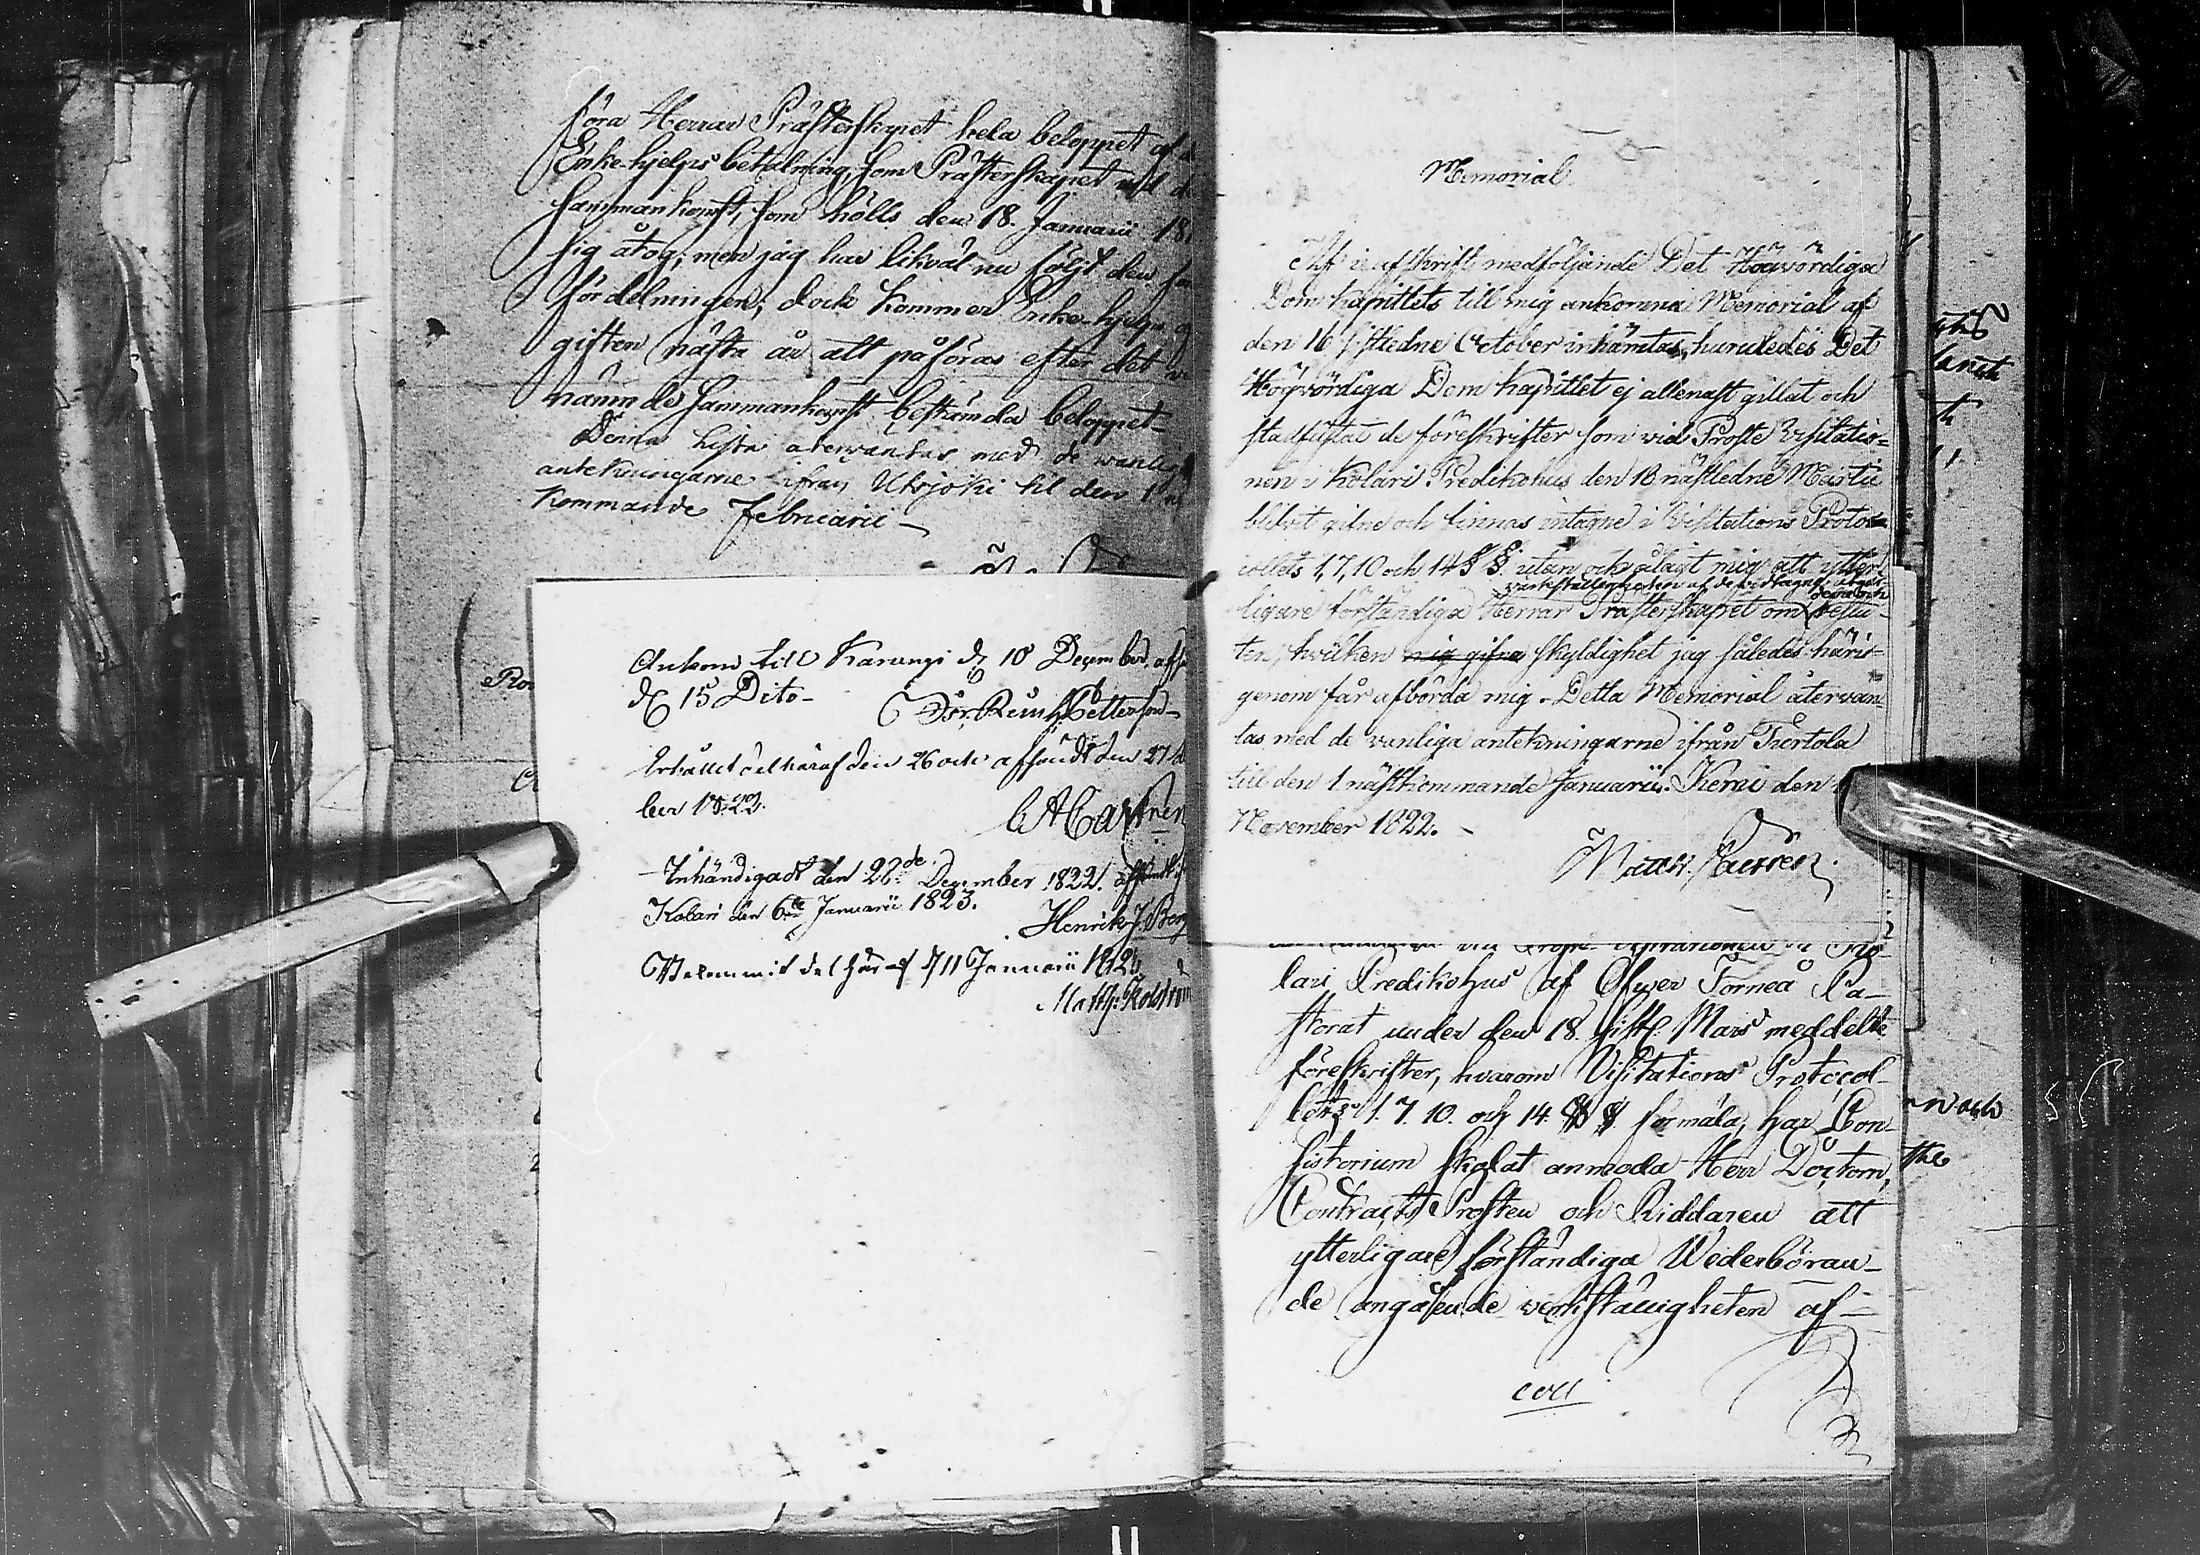 föra Herrar Prästerskapet hela beloppet af
Enke-hjelps betalning, som Prästerskapet vid
sammankomst, som hölls den 18. Januarii 18
sig åtog; men jag har likväl nu följt den
fördelningen; dock kommer Enke-hjelps
giften nästa år att påföras efter det
nämnde sammankomst bestämda beloppet-
Denna lista återväntas med de vanliga
antekningarne ifrån Utsjoki til den 1
Kommande Februarii -
Ankom till Karungi d 10 December
d 15 Dito-
Erhållit del häraf den 26 och afsändt den 27
ber 1822.
Castrén
Inhändigadt den 28de December 1822.
Kolari den 6te Januarii 1823.
Henrik J. Berg
Bekommit del häraf d 11 Januarii 1823
Matth: Kolström
Memorial
Af i afskrift medföljande Det Högvördiga
Domkapitlets till mig ankomna Memorial af
den 16 sistledne October inhämtas, huruledes Det
Högvördiga Domkapitlet ej allenast gillat och
stadfästat de föreskrifter som vid Proste Visitatio=
nen i Kolari Predikohus den 18 nästledne Martii
blifvit gifne och finnas intagne i Visitations Proto=
collets 1, 7, 10 och 14 § §. utan och ålagt mig att ytter
verkställigheten af de vidtagne
ligare förständiga Herrar Prästerskapet om beslu-
ten, hvilken mig gifna skyldighet jag således häri-
genom får afbörda mig. Detta Memorial återvän
tas med de vanliga antekningarne ifrån Turtola
till den 1 nästkommande Januarii. Kemi den
November 1822. -
Matth. Castrén
lari Predikohus af Öfver Torneå Pa-
storat under den 18. sistl. Mars meddelte
föreskrifter, hvarom Visitations Protocol-
lets 1. 7. 10. och 14. § § förmäla, har Con-
sistorium skolat anmoda Herr Doctorn,
Contracts Prosten och Riddaren att
ytterligare förständiga Wederböran-
de angående verkställigheten af -